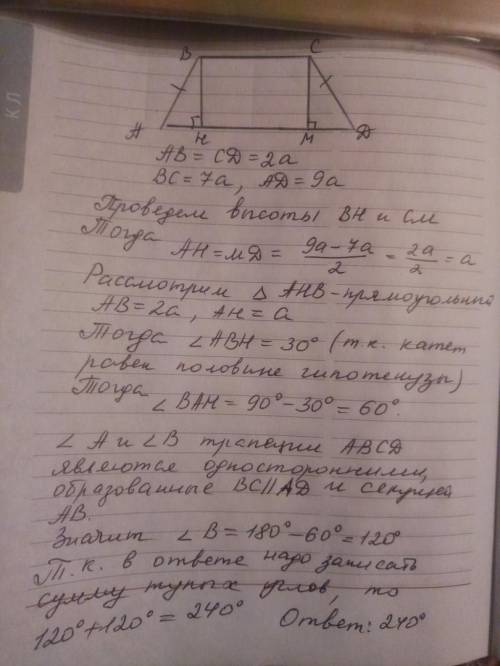 КЛ
B C
A H M D
AB = CD = 2a
BC = 7a, AD = 9a
Проведем высоты BH и CM
Тогда
AH = MD = 9a-7a/2 = 2a/2 = a
Рассмотрим △ AHB-прямоугольный
AB = 2a, AH = a
Тогда ∠ABH = 30° (т.к. катет
равен половине гипотенузы)
Тогда
∠ BAH = 90°-30° = 60°.
∠ A и ∠B трапеции ABCD
являются односторонними,
образованные BC||AD и секущей
AB.
Значит ∠ B = 180°-60° = 120°
Т.к. в ответе надо записать
сумму тупых углов, то
120°+120° = 240° Ответ: 240°